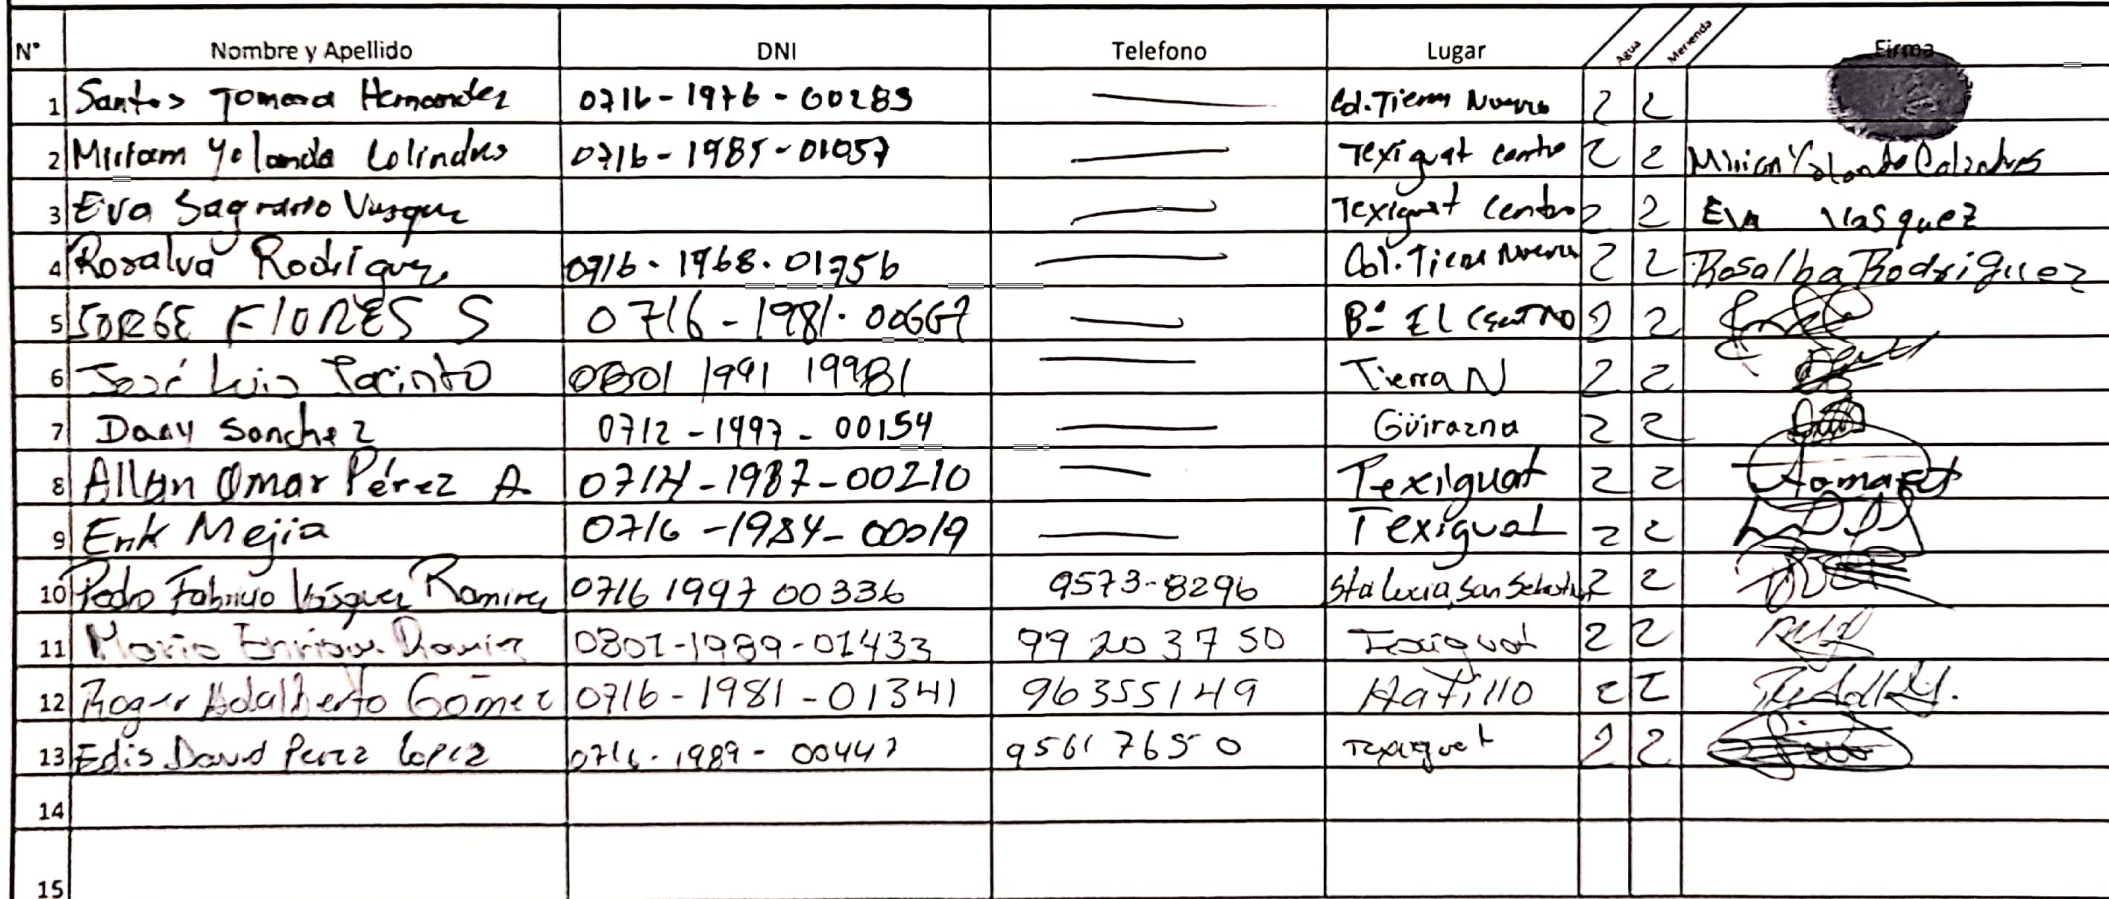 N° Nombre y Apellido DNI Telefono Lugar Agua Merienda Firma
1 Santos Tomasa Hernandez 0716-1976-00283 Col. Tierra Nueva 2 2
2 Miriam Yolanda Colindres 0716-1985-01057 Texiguat centro 2 2 Mirian Yolanda Colindres
3 Eva Sagrario Vasquez Texiguat Centro 2 2 Eva Vasquez
4 Rosalva Rodriguez 0716-1968-01756 Col. Tierra Nueva 2 2 Rosalba Rodriguez
5 JORGE FlORES S 0716-1981-00667 B° El Centro 2 2
6 José Luis Jacinto 0801 1991 19981 Tierra N 2 2
7 Dany Sanchez 0712-1997-00154 Güirazna 2 2
8 Allan Omar Pérez A. 0714-1987-00210 Texiguat 2 2
9 Erik Mejia 0716-1984-00019 Texiguat 2 2
10 Pedro Fabricio Vásquez Ramirez 0716 1997 00336 9573-8296 Sta Lucia, San Sebastian 2 2
11 Mario Enrique 0801-1989-01433 99 20 37 50 Texiguat 2 2
12 Roger Adalberto Gómez 0716-1981-01341 96355149 Hatillo 2 2
13 Edis David Perez Lopez 0716-1989-00447 9561 7650 Texiguat 2 2
14
15